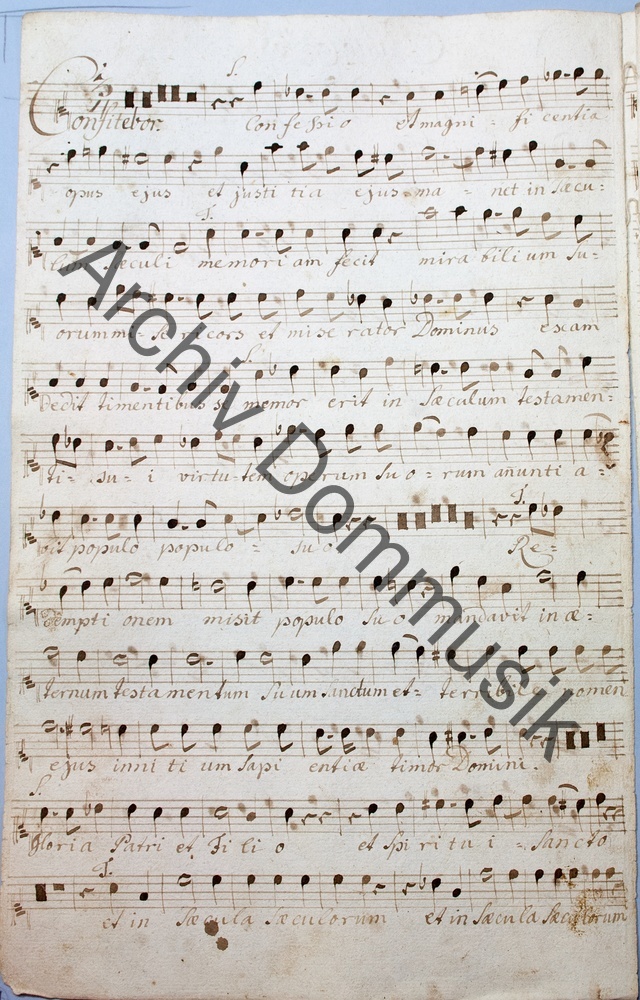 S.
Confitebor. Confessio et magni - ficentia
opus ejus et justi tia ejus ma - net in sæcu-
lum sæculi memoriam fecit mira bilium su-
T.
orum mi- sericors et mise rator Dominus escam
dedit timentibus se memor erit in Sæculum testamen-
ti - su - i virtu- tem operum suo - rum anunti a-
bit populo populo - suo Re-
T.
dempti onem misit populo suo mandavit in æ-
ternum testamentum suum sanctum et - terribile nomen
ejus initi um sapi entiæ timor Domini.
S.
Gloria Patri et Filio et Spiritu i - sancto
T.
et in sæcula sæculorum et in sæcula sæculorum
Archiv Dommusik